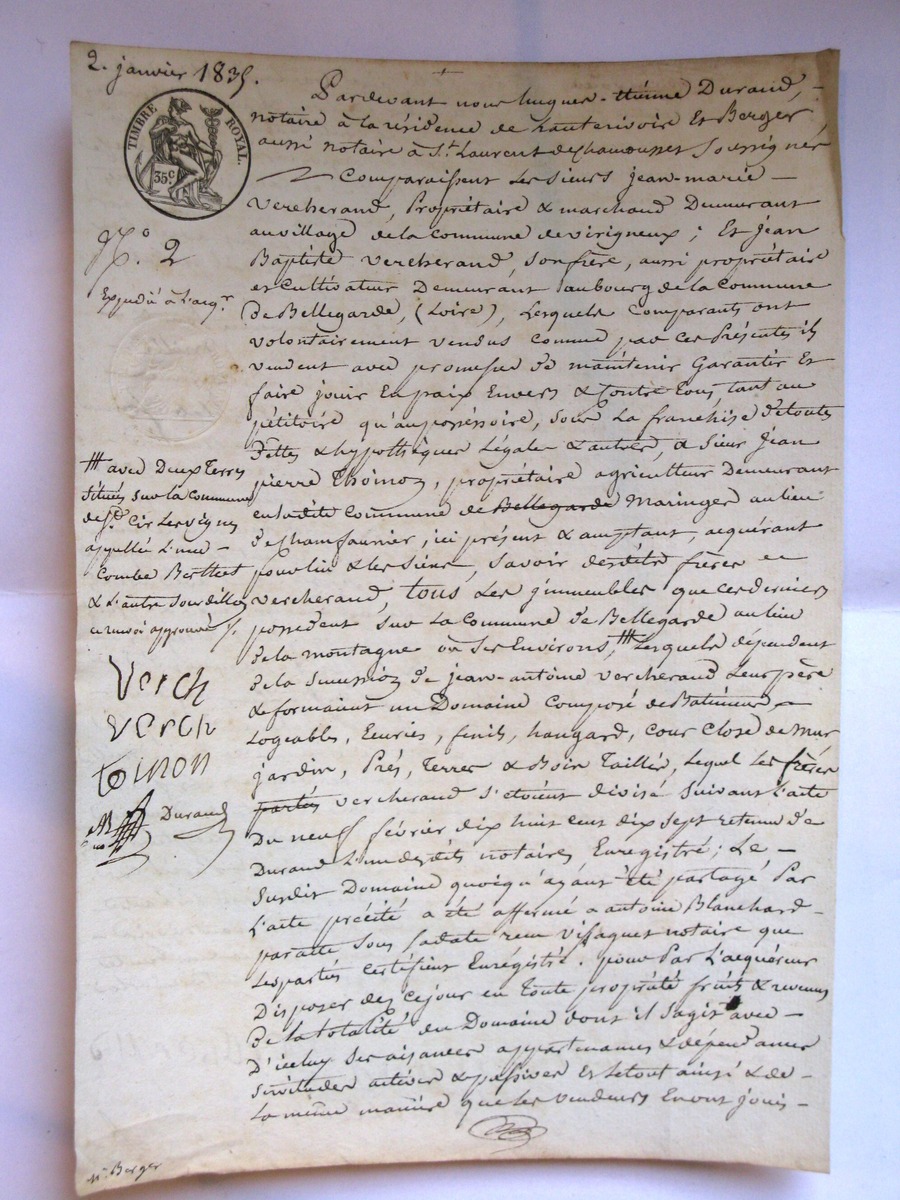 2. janvier 1835.
TIMBRE ROYAL.
35c
N.º 2
Expédié à l'acqr.
Pardevant nous hugues-étienne Durand,
notaire à la résidence de hauterivoire Et Berger
aussi notaire à St. Laurent de Chamousset Soussignés
Comparaissent Les sieurs jean-marie
vercherand, Propriétaire & marchand Demeurant
au village de la Commune de virigneux ; Et jean
Baptiste vercherand, son frère, aussi propriétaire
et Cultivateur Demeurant au bourg de la Commune
de Bellegarde, (Loire), Lesquels Comparants ont
volontairement vendus Comme par Ces Présentes ils
vendent avec promesse de maintenir Garantir Et
faire jouir En paix Envers & Contre Tous, tant au
pétitoire qu'au possessoire, sous La franchise de toutes
Dettes & hypothèques Légales & autres, à Sieur Jean
pierre Thoinon, propriétaire agriculteur Demeurant
en ladite Commune de Bellegarde Maringes au lieu
de, ici présent & acceptant, acquérant
pour lui & les siens, savoir desdits frères
vercherand, tous Les immeubles que ces derniers
possèdent sur La Commune de Bellegarde au lieu
de la montagne ou Ses Environs, ttt Lesquels dépendent
de la succession de jean-antoine vercherand Leur père
& formaient un Domaine Composé de Batiments
Logeables, Ecuries, fenils, hangard, Cour Close de Mur
jardin, Prés, Terres & Bois Taillis, Lequel Les frères
parties vercherand s'étoient divisé suivant L'acte
Du neuf février dix huit cent dix sept retenu de
Durand L'un desdits notaires, Enregistré ; Le
Susdit Domaine quoiqu'ayant été partagé Par
L'acte précité a été affermé a antoine Blanchard
par acte sous sa date reçu notaire que
Les parties Certifient Enregistré. pour Par L'acquéreur
Disposer dez ce jour en Toute propriété fruits & revenus
de la totalité du Domaine dont il s'agit avec
D'iceluy Ses aisances appartenances & dépendances
servitudes actives & passives Et le tout ainsi & de
La même manière que les vendeurs En ont jouis
ttt avec Deux Terres
situées sur la Commune
de St. Cir Les vignes
appellée L'une
Combe Berthet
& L'autre
ce renvoi approuvé
Verch
verch
Toinon
Durand
Me. Berger